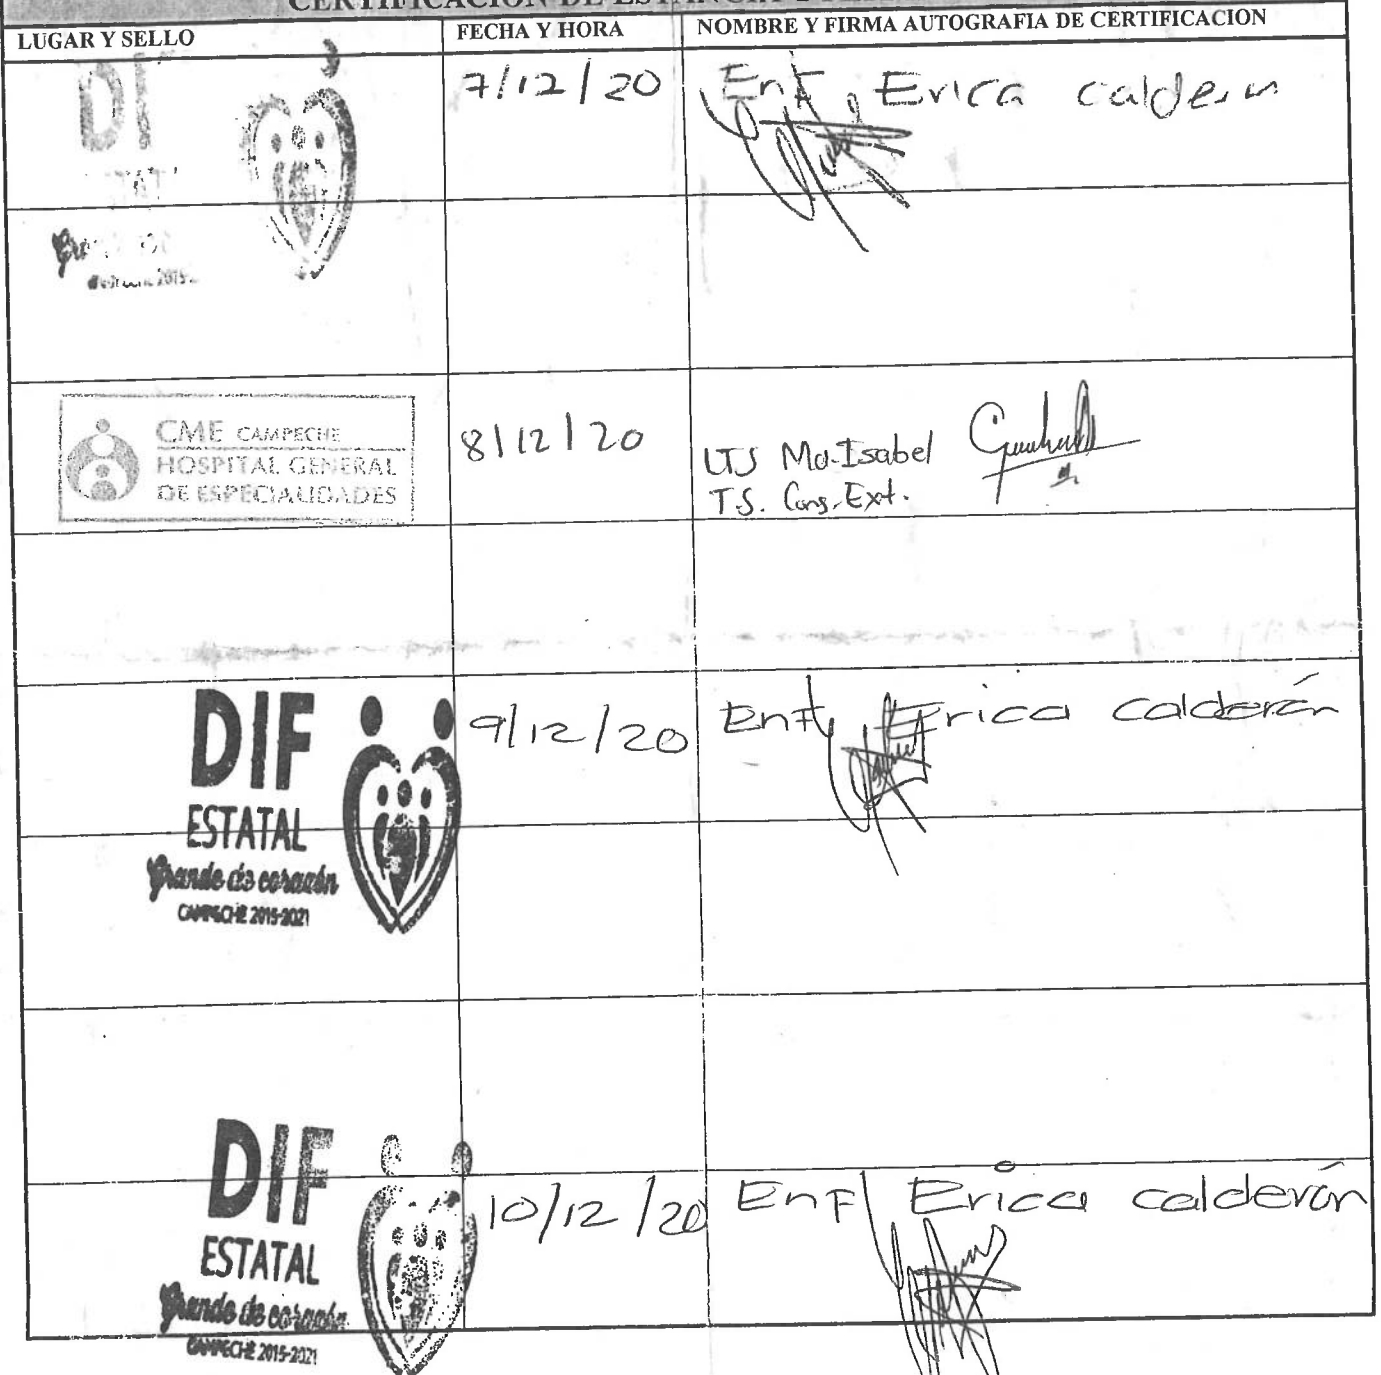 CERTIFICACION DE ESTANCIA
LUGAR Y SELLO
FECHA Y HORA
NOMBRE Y FIRMA AUTOGRAFIA DE CERTIFICACION
DIF
7/12/20
Enf. Erica calderon
8/12/20
CME CAMPECHE
HOSPITAL GENERAL
DE ESPECIALIDADES
LTS Ma. Isabel
T.S. Cons. Ext.
DIF
ESTATAL
Grande de corazón
CAMPECHE 2015-2021
9/12/20
Enf Erica calderón
DIF
ESTATAL
Grande de corazón
CAMPECHE 2015-2021
10/12/20
Enf Erica calderón